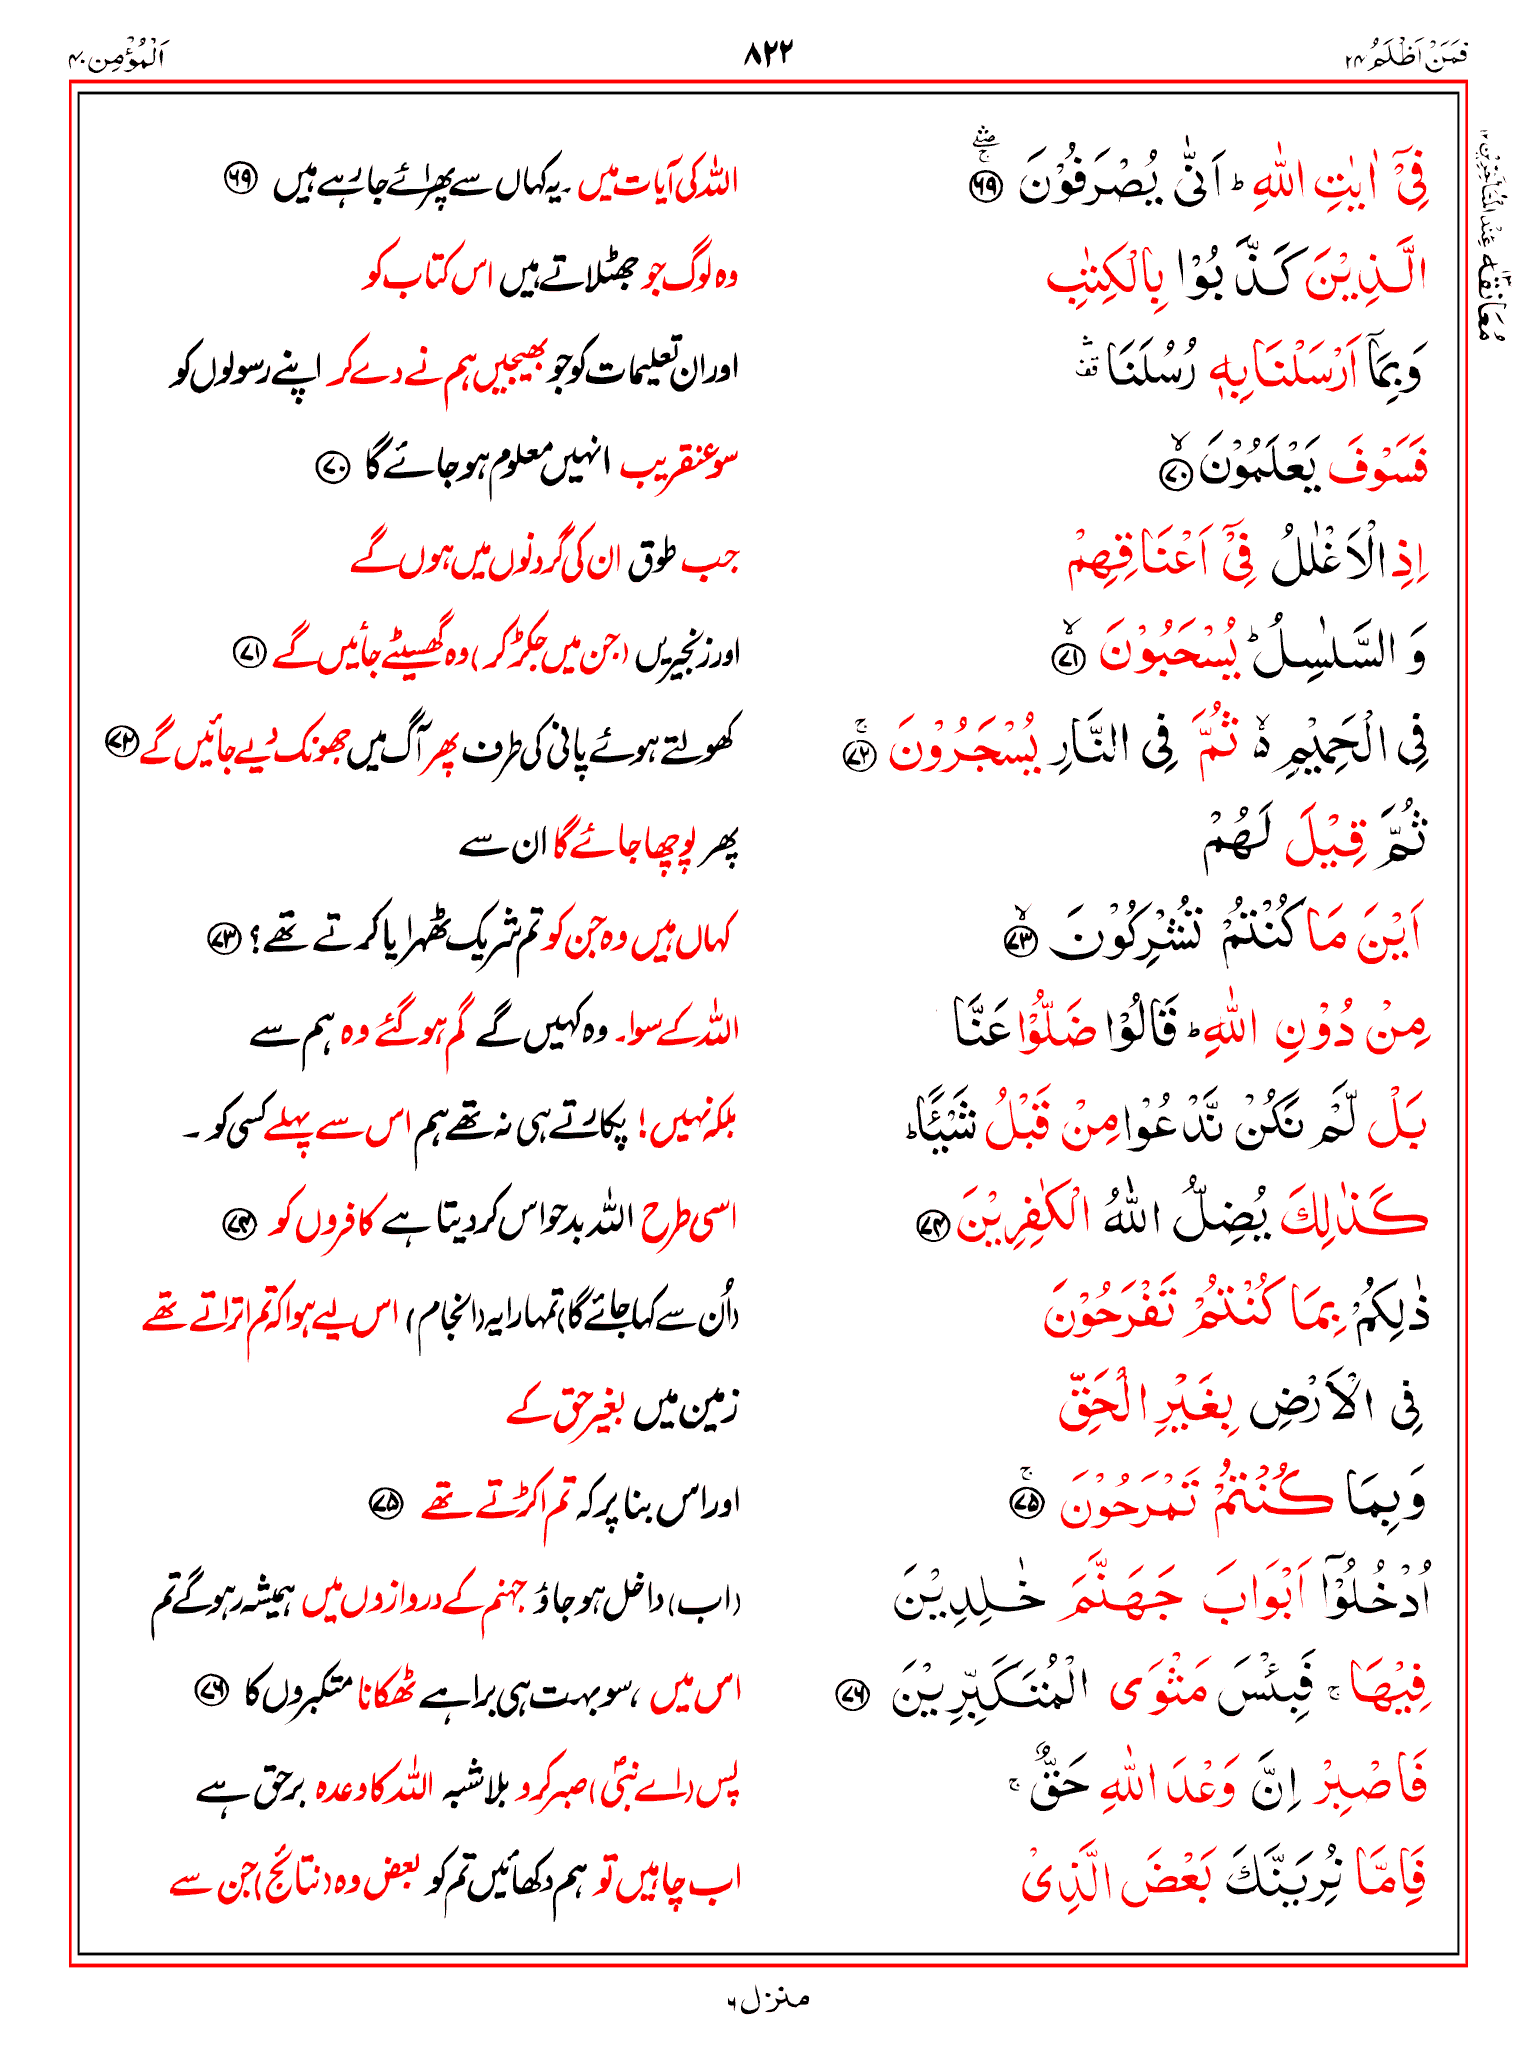 فَمَنْ اَظْلَمُ ۲۴ ۸۲۲ اَلْمُؤْمِن ۴۰
فِیْۤ اٰیٰتِ اللّٰهِ ؕ اَنّٰی یُصْرَفُوْنَ ﴿۶۹﴾ اللہ کی آیات میں ۔ یہ کہاں سے پھرائے جا رہے ہیں ﴿۶۹﴾
الَّذِیْنَ كَذَّبُوْا بِالْكِتٰبِ وہ لوگ جو جھٹلاتے ہیں اس کتاب کو
وَبِمَاۤ اَرْسَلْنَا بِهٖ رُسُلَنَا ۛ۫ اور ان تعلیمات کو جو بھیجیں ہم نے دے کر اپنے رسولوں کو
فَسَوْفَ یَعْلَمُوْنَ ﴿۷۰﴾ سو عنقریب انہیں معلوم ہو جائے گا ﴿۷۰﴾
اِذِ الْاَغْلٰلُ فِیْۤ اَعْنَاقِهِمْ جب طوق ان کی گردنوں میں ہوں گے
وَ السَّلٰسِلُ ؕ یُسْحَبُوْنَ ﴿۷۱﴾ اور زنجیریں (جن میں جکڑ کر) وہ گھسیٹے جائیں گے ﴿۷۱﴾
فِی الْحَمِیْمِ ۙ۬ ثُمَّ فِی النَّارِ یُسْجَرُوْنَ ﴿۷۲﴾ کھولتے ہوئے پانی کی طرف پھر آگ میں جھونک دیے جائیں گے ﴿۷۲﴾
ثُمَّ قِیْلَ لَهُمْ پھر پوچھا جائے گا ان سے
اَیْنَ مَا كُنْتُمْ تُشْرِكُوْنَ ﴿۷۳﴾ کہاں ہیں وہ جن کو تم شریک ٹھہرایا کرتے تھے؟ ﴿۷۳﴾
مِنْ دُوْنِ اللّٰهِ ؕ قَالُوْا ضَلُّوْا عَنَّا اللہ کے سوا۔ وہ کہیں گے گم ہو گئے وہ ہم سے
بَلْ لَّمْ نَكُنْ نَّدْعُوْا مِنْ قَبْلُ شَیْـًٔا ؕ بلکہ نہیں! پکارتے ہی نہ تھے ہم اس سے پہلے کسی کو ۔
كَذٰلِكَ یُضِلُّ اللّٰهُ الْكٰفِرِیْنَ ﴿۷۴﴾ اسی طرح اللہ بدحواس کر دیتا ہے کافروں کو ﴿۷۴﴾
ذٰلِكُمْ بِمَا كُنْتُمْ تَفْرَحُوْنَ (اُن سے کہا جائے گا) تمہارا یہ (انجام) اس لیے ہوا کہ تم اتراتے تھے
فِی الْاَرْضِ بِغَیْرِ الْحَقِّ زمین میں بغیر حق کے
وَبِمَا كُنْتُمْ تَمْرَحُوْنَ ﴿۷۵﴾ اور اس بنا پر کہ تم اکڑتے تھے ﴿۷۵﴾
اُدْخُلُوْۤا اَبْوَابَ جَهَنَّمَ خٰلِدِیْنَ (اب) داخل ہو جاؤ جہنم کے دروازوں میں ہمیشہ رہو گے تم
فِیْهَا ۚ فَبِئْسَ مَثْوَی الْمُتَكَبِّرِیْنَ ﴿۷۶﴾ اس میں ، سو بہت ہی برا ہے ٹھکانا متکبروں کا ﴿۷۶﴾
فَاصْبِرْ اِنَّ وَعْدَ اللّٰهِ حَقٌّ ۚ پس (اے نبیؐ) صبر کرو بلا شبہ اللہ کا وعدہ برحق ہے
فَاِمَّا نُرِیَنَّكَ بَعْضَ الَّذِیْ اب چاہیں تو ہم دکھائیں تم کو بعض وہ (نتائج) جن سے
مُعَانَقَه ۱۳ عِنْدَ الْمُتَاَخِّرِیْنَ ۱۲
منزل ۶